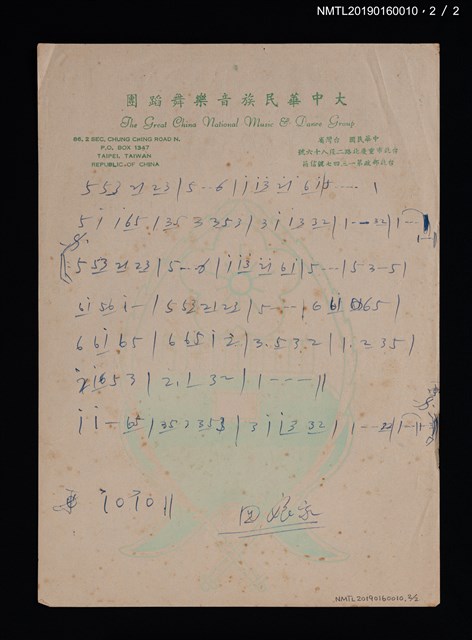 NMTL20190160010, 2 / 2
大中華民族音樂舞蹈團
The Great China National Music & Dance Group
66, 2 SEC, CHUNG CHING ROAD N.
P.O. BOX 1347
TAIPEI, TAIWAN
REPUBLIC OF CHINA
中華民國 台灣省
台北市重慶北路二段八十六號
台北郵政第一三四七號信箱
5 53 2i 23 | 5 - - 6 | i i3 2i 6i | 5 - - - |
5 i i65 | 35 2 353 | 3 i i3 32 | 1 - - 22 | 1 - -
5 53 2i 23 | 5 - - 6 | i i3 2i 6i | 5 - - - | 5 3 - 5 |
6i 56 i - | 5 53 2i 23 | 5 - - - | 6 6i 65 |
6 6i 65 | 6 65 i 2 | 3. 5 3 2 | 1. 2 35 |
2 i653 | 2. 1 32 | 1 - - - ||
i i - 65 | 35 2 353 | 3 i i3 32 | 1 - - 22 | 1 - - ||
i 0 i 0 ||
回娘家
NMTL20190160010